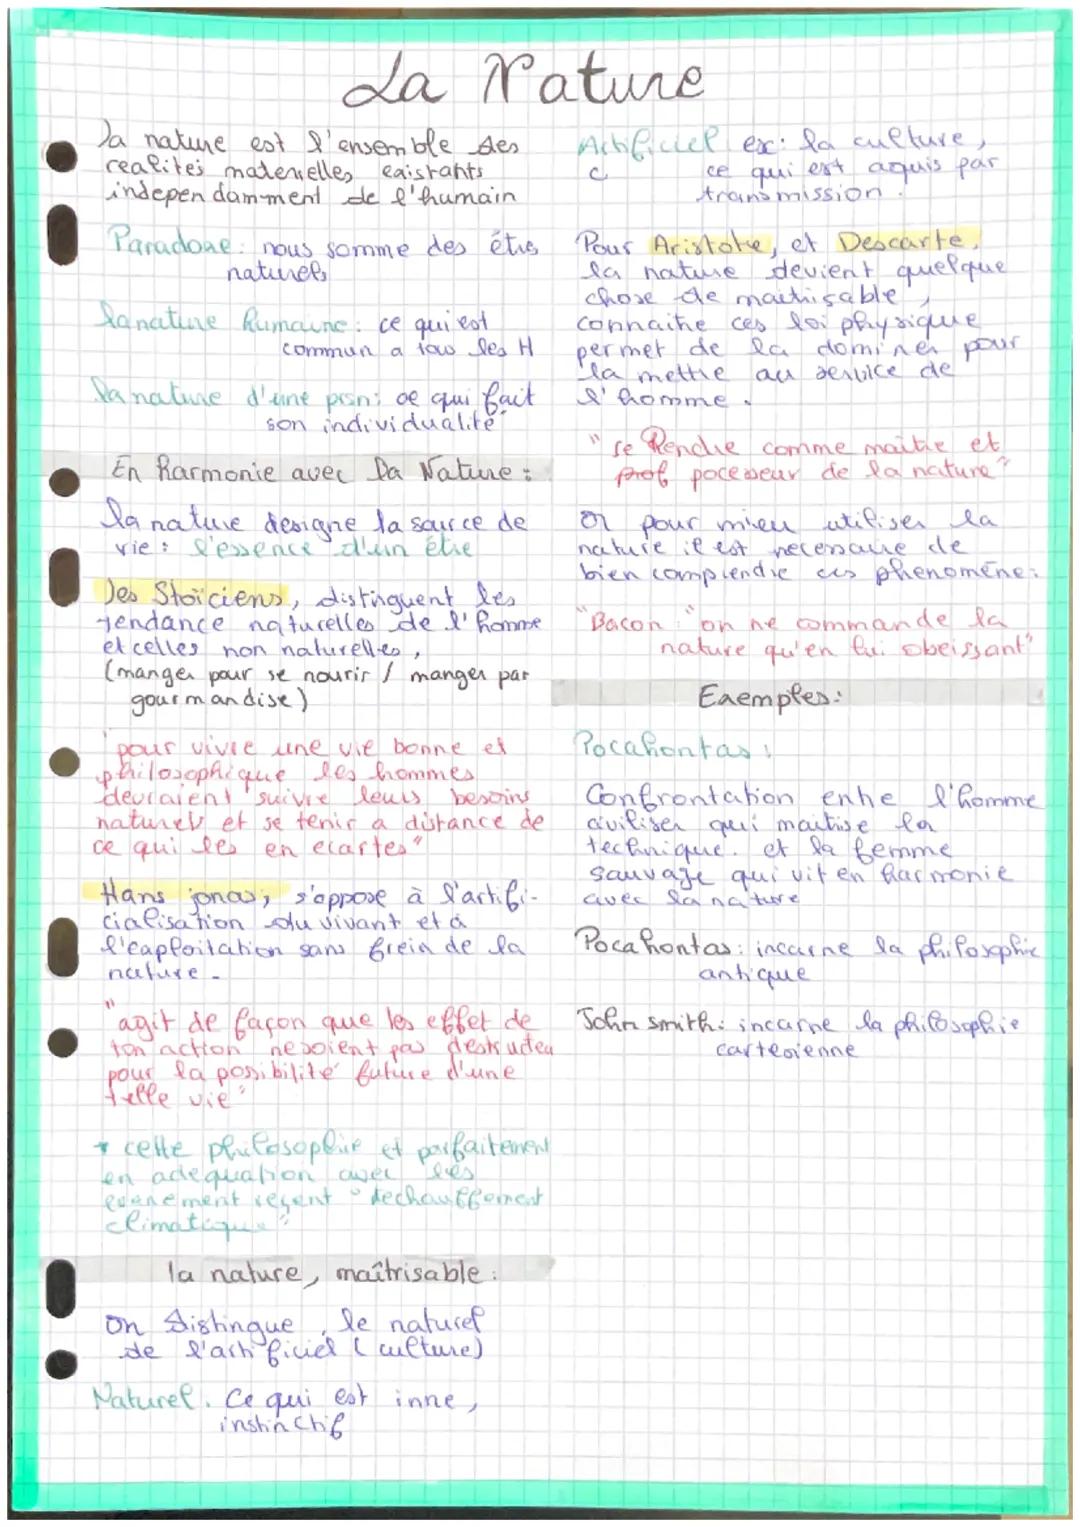 La Nature
la nature est l'ensemble des
realités materielles existants
independamment de l'humain
Paradoxe: nous somme des êtres
naturels
la nature humaine: ce qui est
commun a tous les H
la nature d'une prsn: ce qui fait
son individualité
En harmonie avec la Nature:
la nature designe la source de
vie: l'essence d'un être
Les Stoïciens, distinguent les
tendance naturelles de l'homme
et celles non naturelles,
(manger pour se nourir / manger par
gourmandise)
"pour vivre une vie bonne et
philosophique les hommes
devraient suivre leurs besoins
naturels et se tenir a distance de
ce qui les en ecartes"
Hans jonas, s'oppose à l'artifi-
cialisation du vivant et à
l'exploitation sans frein de la
nature.
"agit de façon que les effet de
ton action ne soient pas destructeu
pour la possibilité future d'une
telle vie"
* cette philosophie et parfaitement
en adequation avec les
evenement recent "dechauffement
climatique"
la nature, maîtrisable:
On distingue, le naturel
de l'artificiel (culture)
Naturel. Ce qui est inne,
instinctif
Artificiel ex: la culture,
c ce qui est aquis par
transmission.
Pour Aristote, et Descarte,
la nature devient quelque
chose de maitrisable,
connaitre ces loi physique
permet de la dominer pour
la mettre au service de
l'homme.
"se Rendre comme maitre et
prof pocesseur de la nature"
Or pour mieu utiliser la
nature il est necessaire de
bien comprendre ces phenomène:
"Bacon: "on ne commande la
nature qu'en lui obeissant"
Exemples:
Pocahontas:
Confrontation entre l'homme
civiliser qui maitrise la
technique. et la femme
sauvage qui vit en harmonie
avec la nature
Pocahontas: incarne la philosophie
antique
John smith: incarne la philosophie
cartesienne